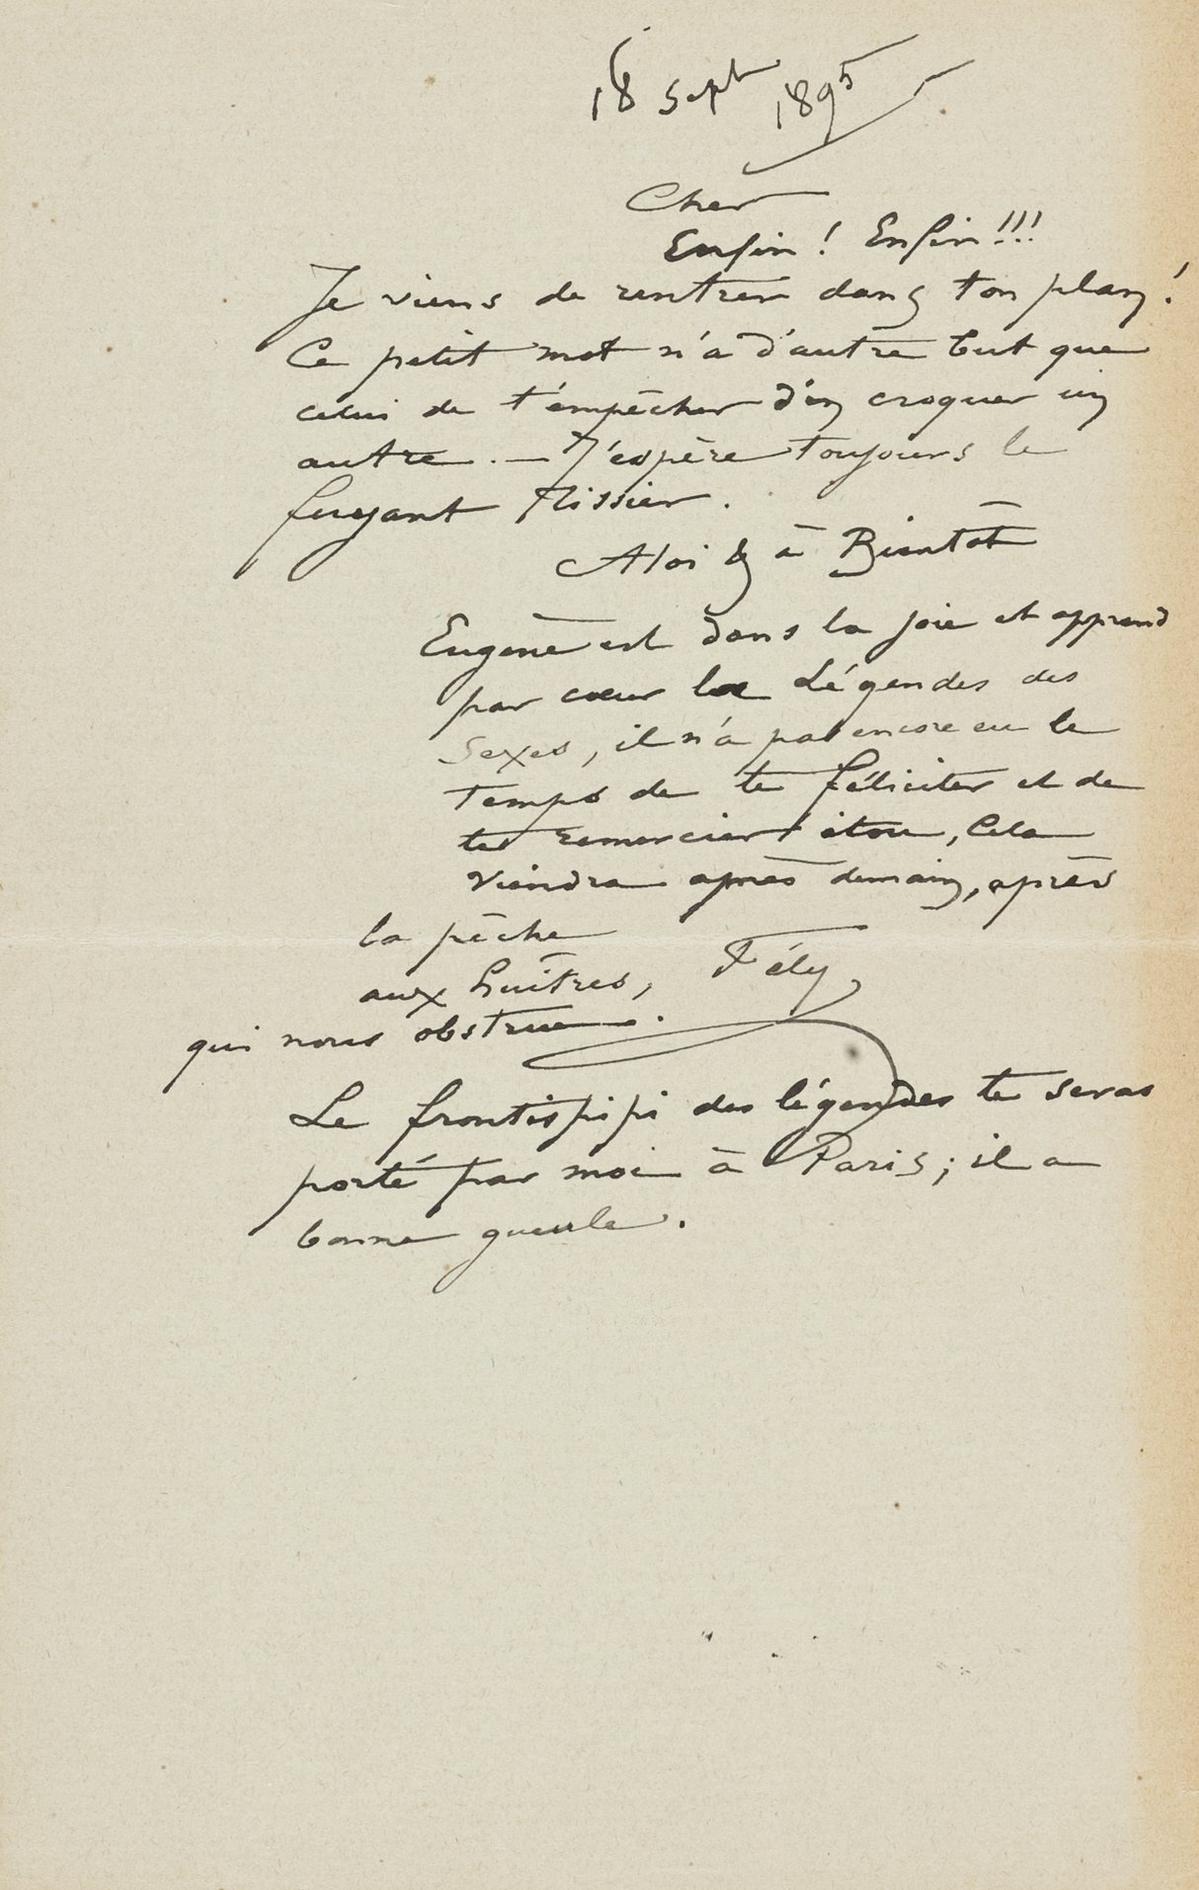 18 sept 1895
Cher
Enfin ! Enfin !!!
Je viens de rentrer dans ton plan !
Ce petit mot n'a d'autre but que
celui de t'empêcher d'en croquer un
autre . — J'espère toujours le
fuyant Tissier .
A toi & à Bientôt
Eugène est dans la joie et apprend
par cœur les Légendes des
Sexes, il n'a pas encore eu le
temps de te féliciter et de
te remercier itou, Cela
viendra après demain, après
la pêche
aux huîtres,
qui nous obstrue .
Fély
Le frontispipi des légendes te seras
porté par moi à Paris ; il a
bonne gueule .